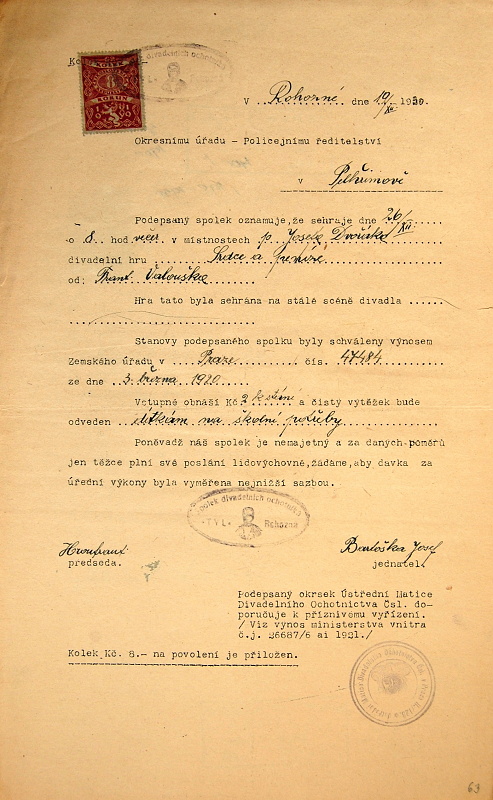 Ko
KOLEK
KORUN
divadelních ochotníků
TYL
V Rohozné dne 10/XII 1930.
Okresnímu úřadu - Policejnímu ředitelství
v Pelhřimově
Podepsaný spolek oznamuje,že sehraje dne 26/XII
o 8 hod večer v místnostech p. Josefa Dvořáka
divadelní hru Srdce a peníze
od: Frant. Valouška
Hra tato byla sehrána na stálé scéně divadla ......
Stanovy podepsaného spolku byly schváleny výnosem
Zemského úřadu v Praze čís. 47484
ze dne 3. března 1920
Vstupné obnáší Kč 2 k stání a čistý výtěžek bude
odveden dítkám na školní potřeby
Poněvadž náš spolek je nemajetný a za daných-poměrů
jen těžce plní své poslání lidovýchovné,žádáme,aby davka za
úřední výkony byla vyměřena nejnižší sazbou.
Spolek divadelních ochotníků
"TYL" Rohozná
Bartoška Josef
předseda.
jednatel.
Podepsaný okrsek Ústřední Matice
Divadelního Ochotnictva Čsl. do-
poručuje k příznivému vyřízení.
/ Viz výnos ministerstva vnitra
č.j. 26687/6 ai 1921./
Kolek Kč. 8.- na povolení je přiložen.
63